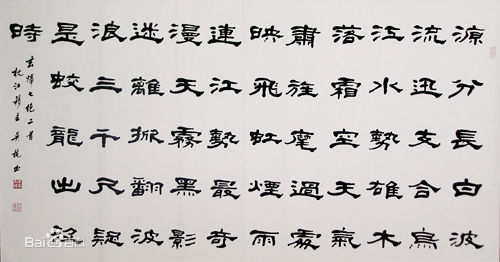 源分長白波
流迅支合烏
江水勢雄木
落霜空天氣
肅旌麾過處
映飛虹煙雨
連江勢最奇
漫天霧黑影
迷離掀翻波
浪三千尺疑
是蛟龍出沒
時
玄燁七絕二首
Baidu百科